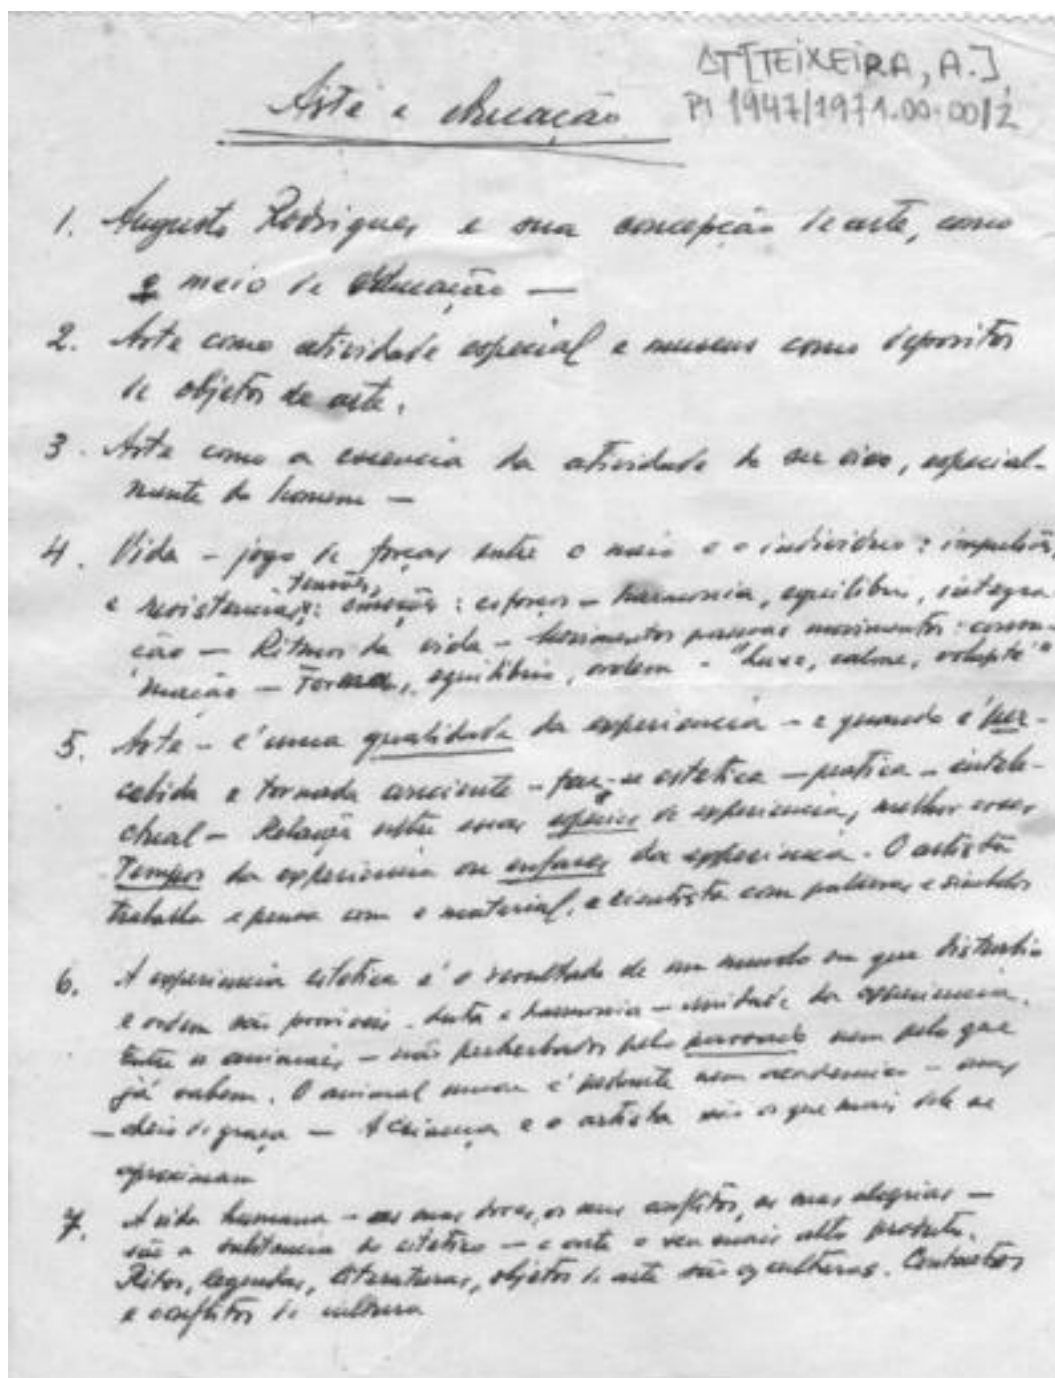 AT[TEIXEIRA, A.]
Pi 1947/1971.00.00/2
Arte e educação
1. Augusto Rodrigues e sua concepção de arte, como
o meio de educação —
2. Arte como atividade especial e museus como depositos
de objetos de arte.
3. Arte como a essencia da atividade do ser vivo, especial-
mente do homem —
4. Vida – jogo de forças entre o meio e o individuo: impulsões,
tensões,
e resistencias: emoções: esforços – harmonia, equilibrio, integra
ção — Ritmos da vida – movimentos: consu-
mação — Forma, equilibrio, ordem – "luxe, calme, volupté"
5. Arte – é uma qualidade da experiencia – e quando é per-
cebida e tornada consciente – faz-se estetica — pratica – intele-
ctual – Relação entre essas especies de experiencia, melhor esses
Tempos da experiencia ou enfases da experiencia. O artista
trabalha e pensa com o material, o cientista com palavras e simbolos
6. A experiencia estetica é o resultado de um mundo em que disturbio
e ordem são provaveis. Luta e harmonia – unidade da experiencia.
Entre os animais – não perturbados pelo passado nem pelo que
já sabem. O animal nunca é pedante nem academico – mas
— cheio de graça — A criança e o artista são os que mais dele se
aproximam
7. A vida humana – as suas dores, os seus conflitos, as suas alegrias —
são a substancia do estetico — e arte o seu mais alto produto.
Ritos, legendas, literaturas, objetos de arte são as culturas. Contrastes
e conflitos de cultura